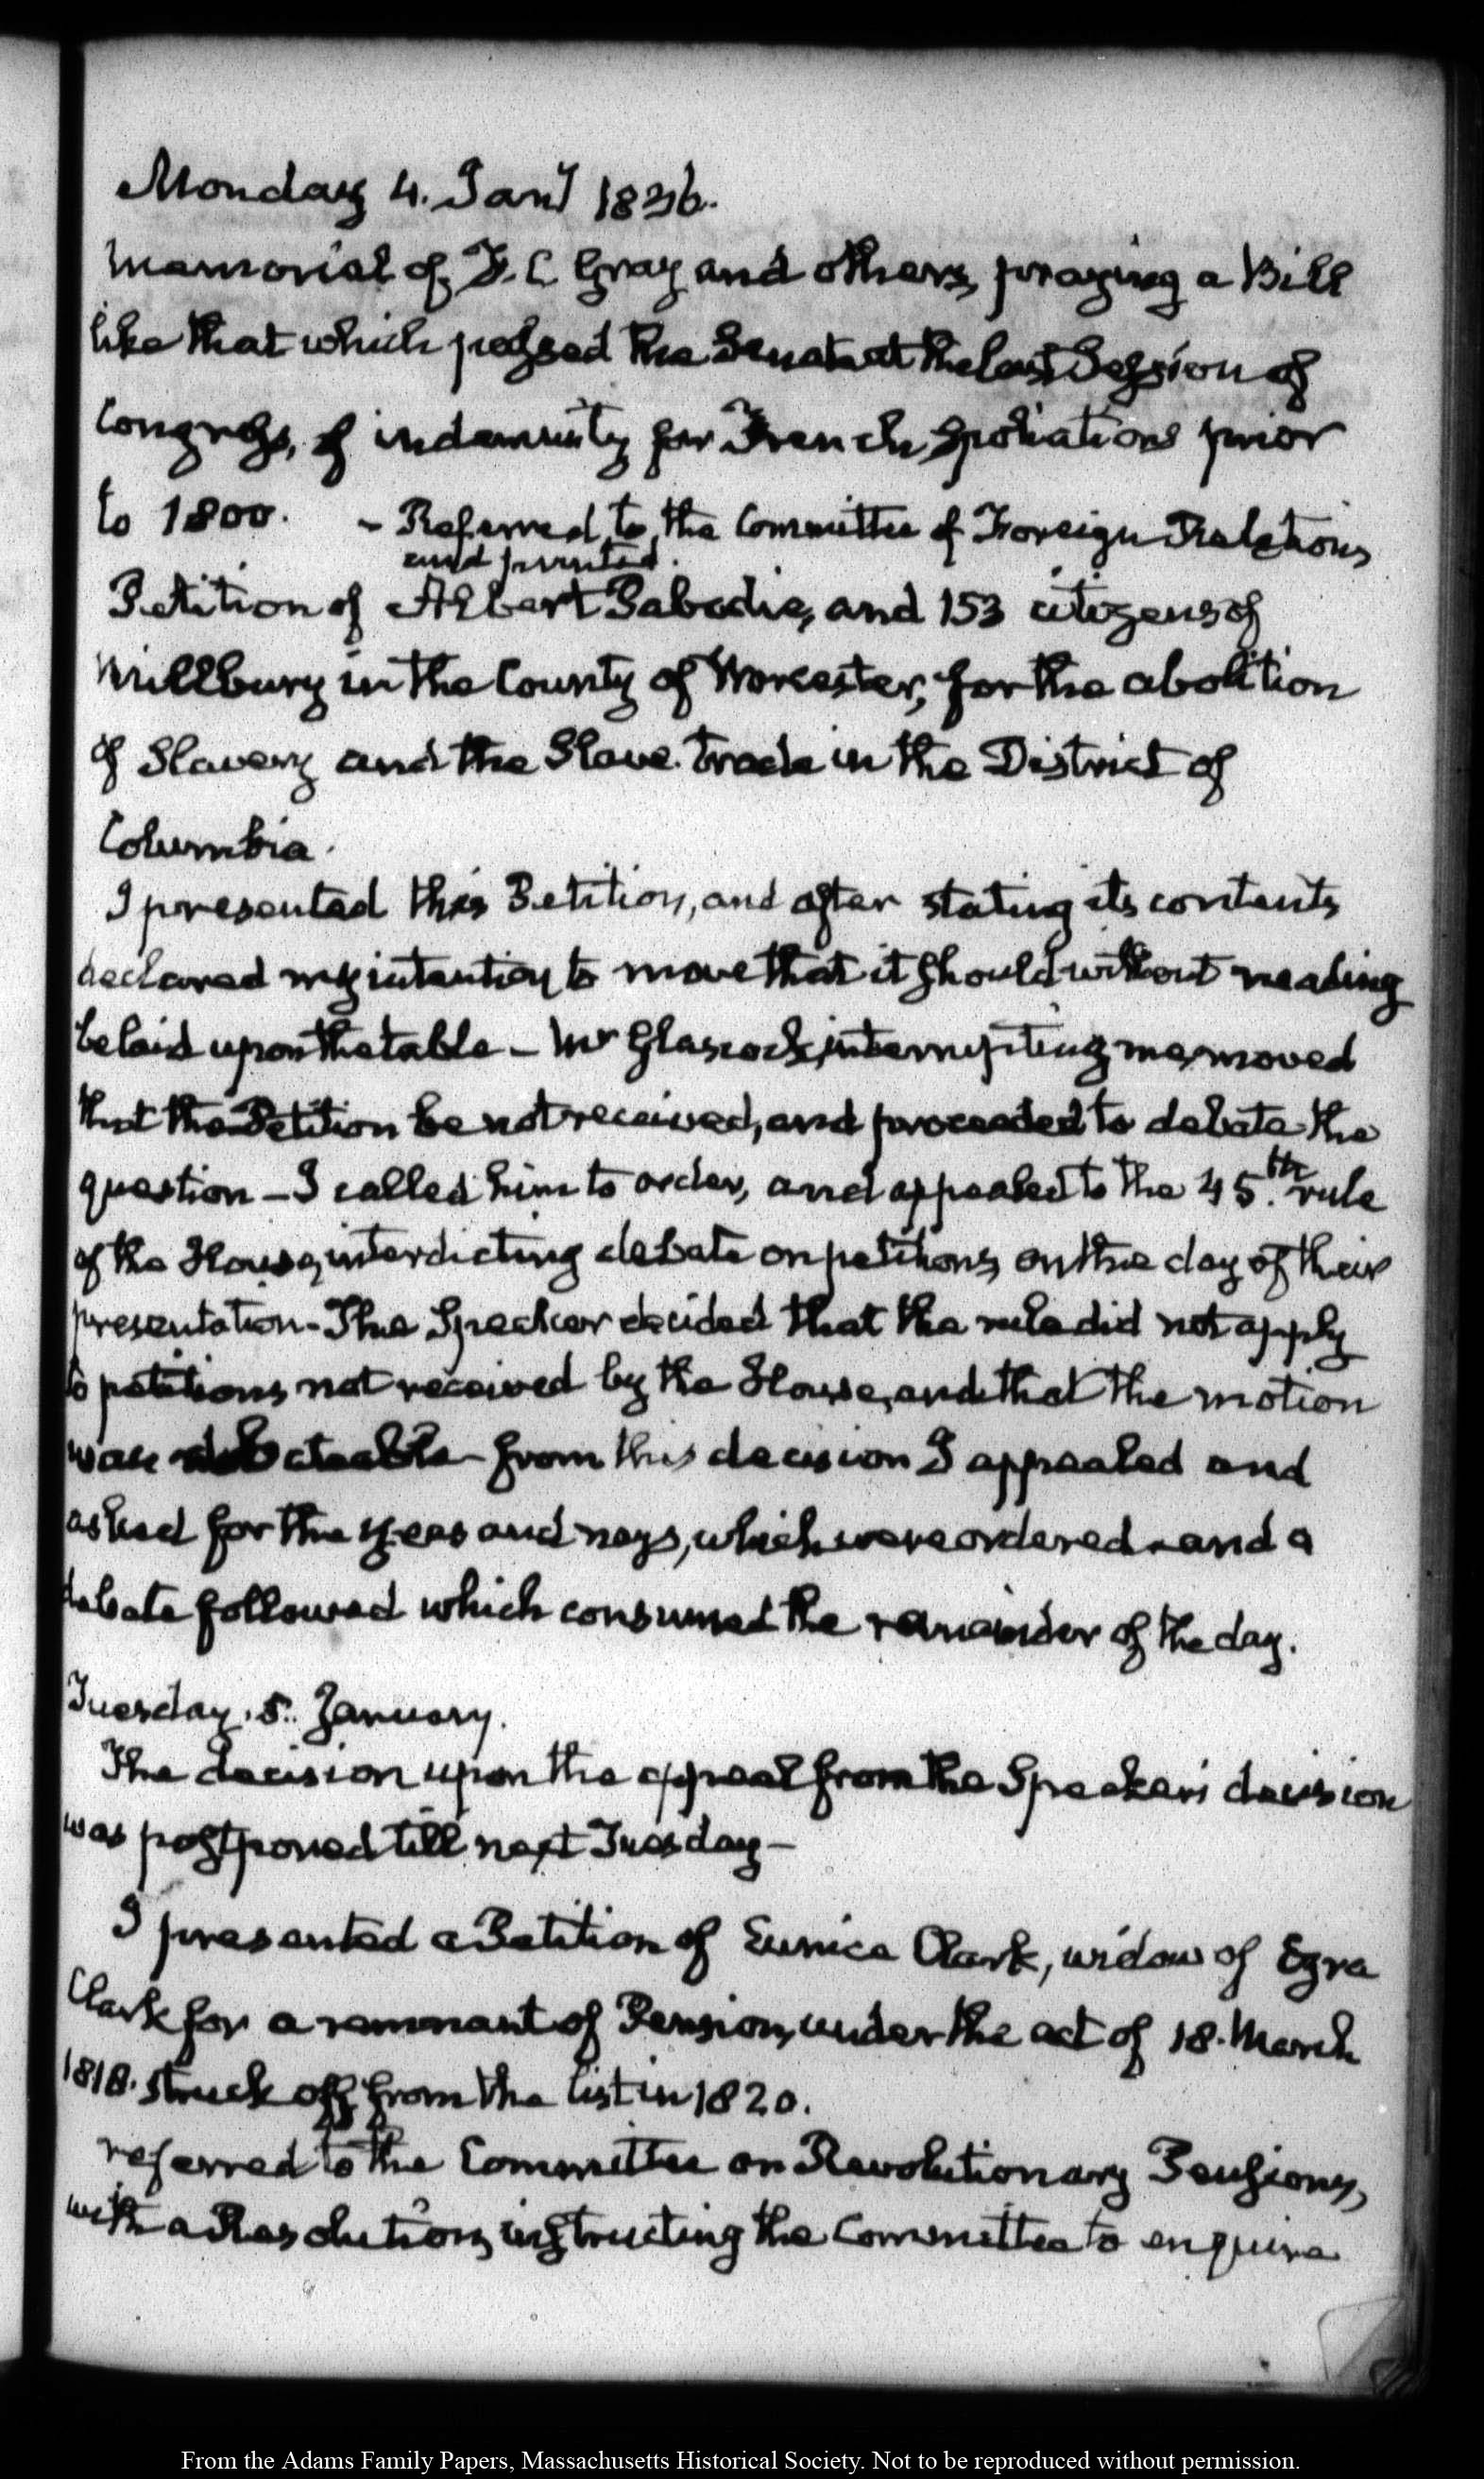 Monday 4. Jany 1836.
Memorial of F. C. Gray and others, praying a Bill
like that which passed the Senate at the last Session of
Congress, of indemnity for French Spoliations prior
to 1800. - Referred to the Committee of Foreign Relations
and printed.
Petition of Albert and 153 citizens of
Millbury in the County of Worcester, for the abolition
of Slavery and the Slave trade in the District of
Columbia.
I presented this Petition, and after stating its contents
declared my intention to move that it should without reading
be laid upon the table - Mr Glascock, interrupting me, moved
that the Petition be not received, and proceeded to debate the
question - I called him to order, and appealed to the 45.th rule
of the House, interdicting debate on petitions, on the day of their
presentation - The Speaker decided that the rule did not apply
to petitions not received by the House, and that the motion
was debateable - from this decision I appealed and
asked for the yeas and nays, which were ordered - and a
debate followed which consumed the remainder of the day.
Tuesday. 5. January.
The decision upon the appeal from the Speaker's decision
was postponed till next Tuesday -
I presented a Petition of Eunice Clark, widow of Ezra
Clark for a remnant of Pension, under the act of 18. March
1818. struck off from the list in 1820.
referred to the Committee on Revolutionary Pensions,
with a Resolution, instructing the Committee to enquire
From the Adams Family Papers, Massachusetts Historical Society. Not to be reproduced without permission.